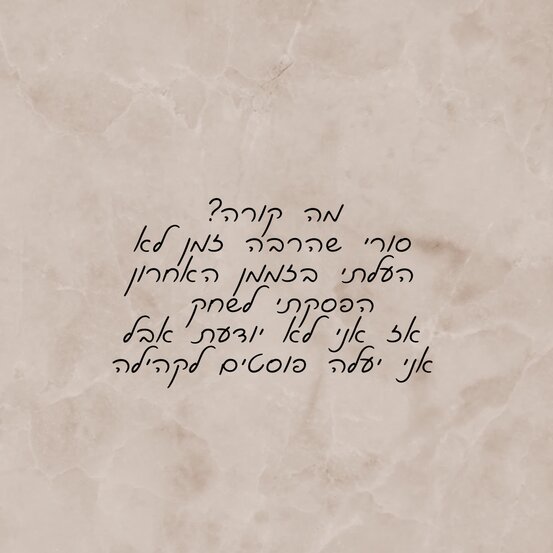 מה קורה?
סורי שהרבה זמן לא
העלתי בזממן האחרון
הפסקתי לשחק
אז אני לא יודעת אבל
אני יעלה פוסטים לקהילה